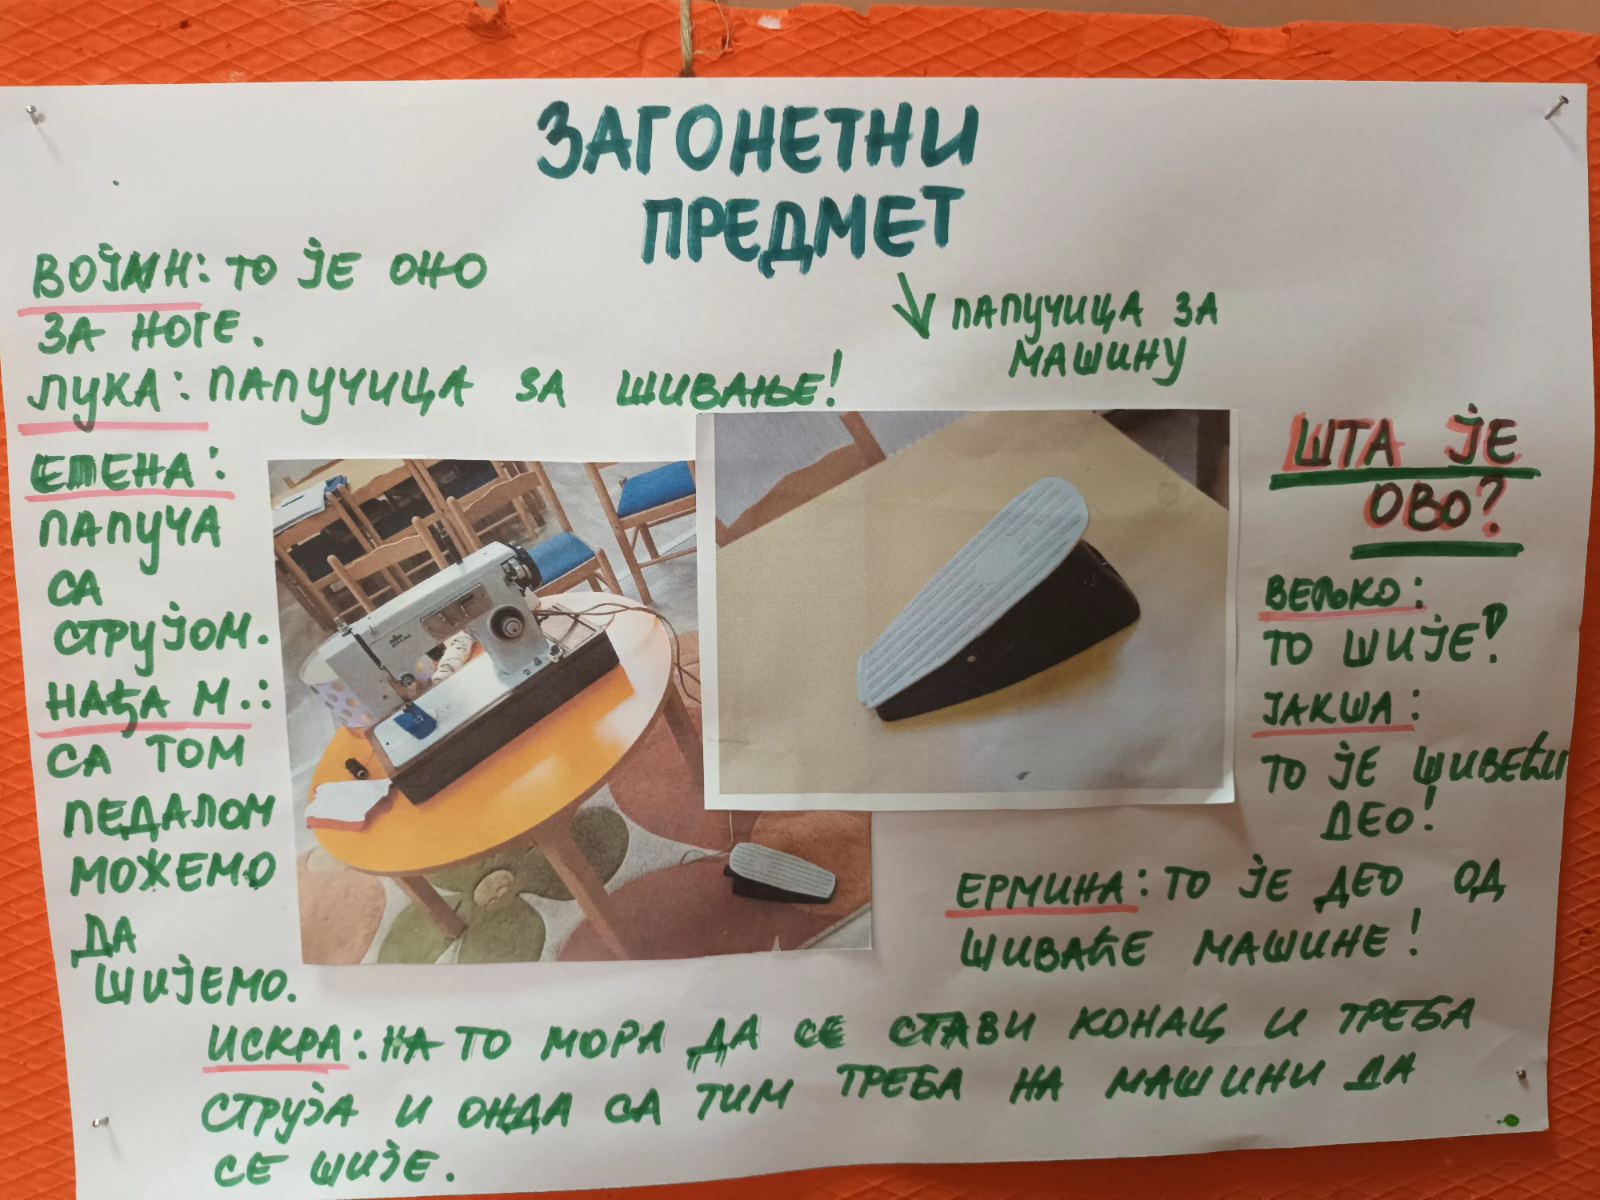 ЗАГОНЕТНИ
ПРЕДМЕТ
ПАПУЧИЦА ЗА
МАШИНУ
ВОЈАН: ТО ЈЕ ОНО
ЗА НОГЕ.
ЛУКА: ПАПУЧИЦА ЗА ШИВАЊЕ!
ЕЛЕНА:
ПАПУЧА
СА
СТРУЈОМ.
НАЂА М.:
СА ТОМ
ПЕДАЛОМ
МОЖЕМО
ДА
ШИЈЕМО.
ШТА ЈЕ
ОВО?
ВЕЉКО:
ТО ШИЈЕ!
ЈАКША:
ТО ЈЕ ШИВЕЋИ
ДЕО!
ЕРМИНА: ТО ЈЕ ДЕО ОД
ШИВАЋЕ МАШИНЕ!
ИСКРА: НА ТО МОРА ДА СЕ СТАВИ КОНАЦ И ТРЕБА
СТРУЈА И ОНДА СА ТИМ ТРЕБА НА МАШИНИ ДА
СЕ ШИЈЕ.